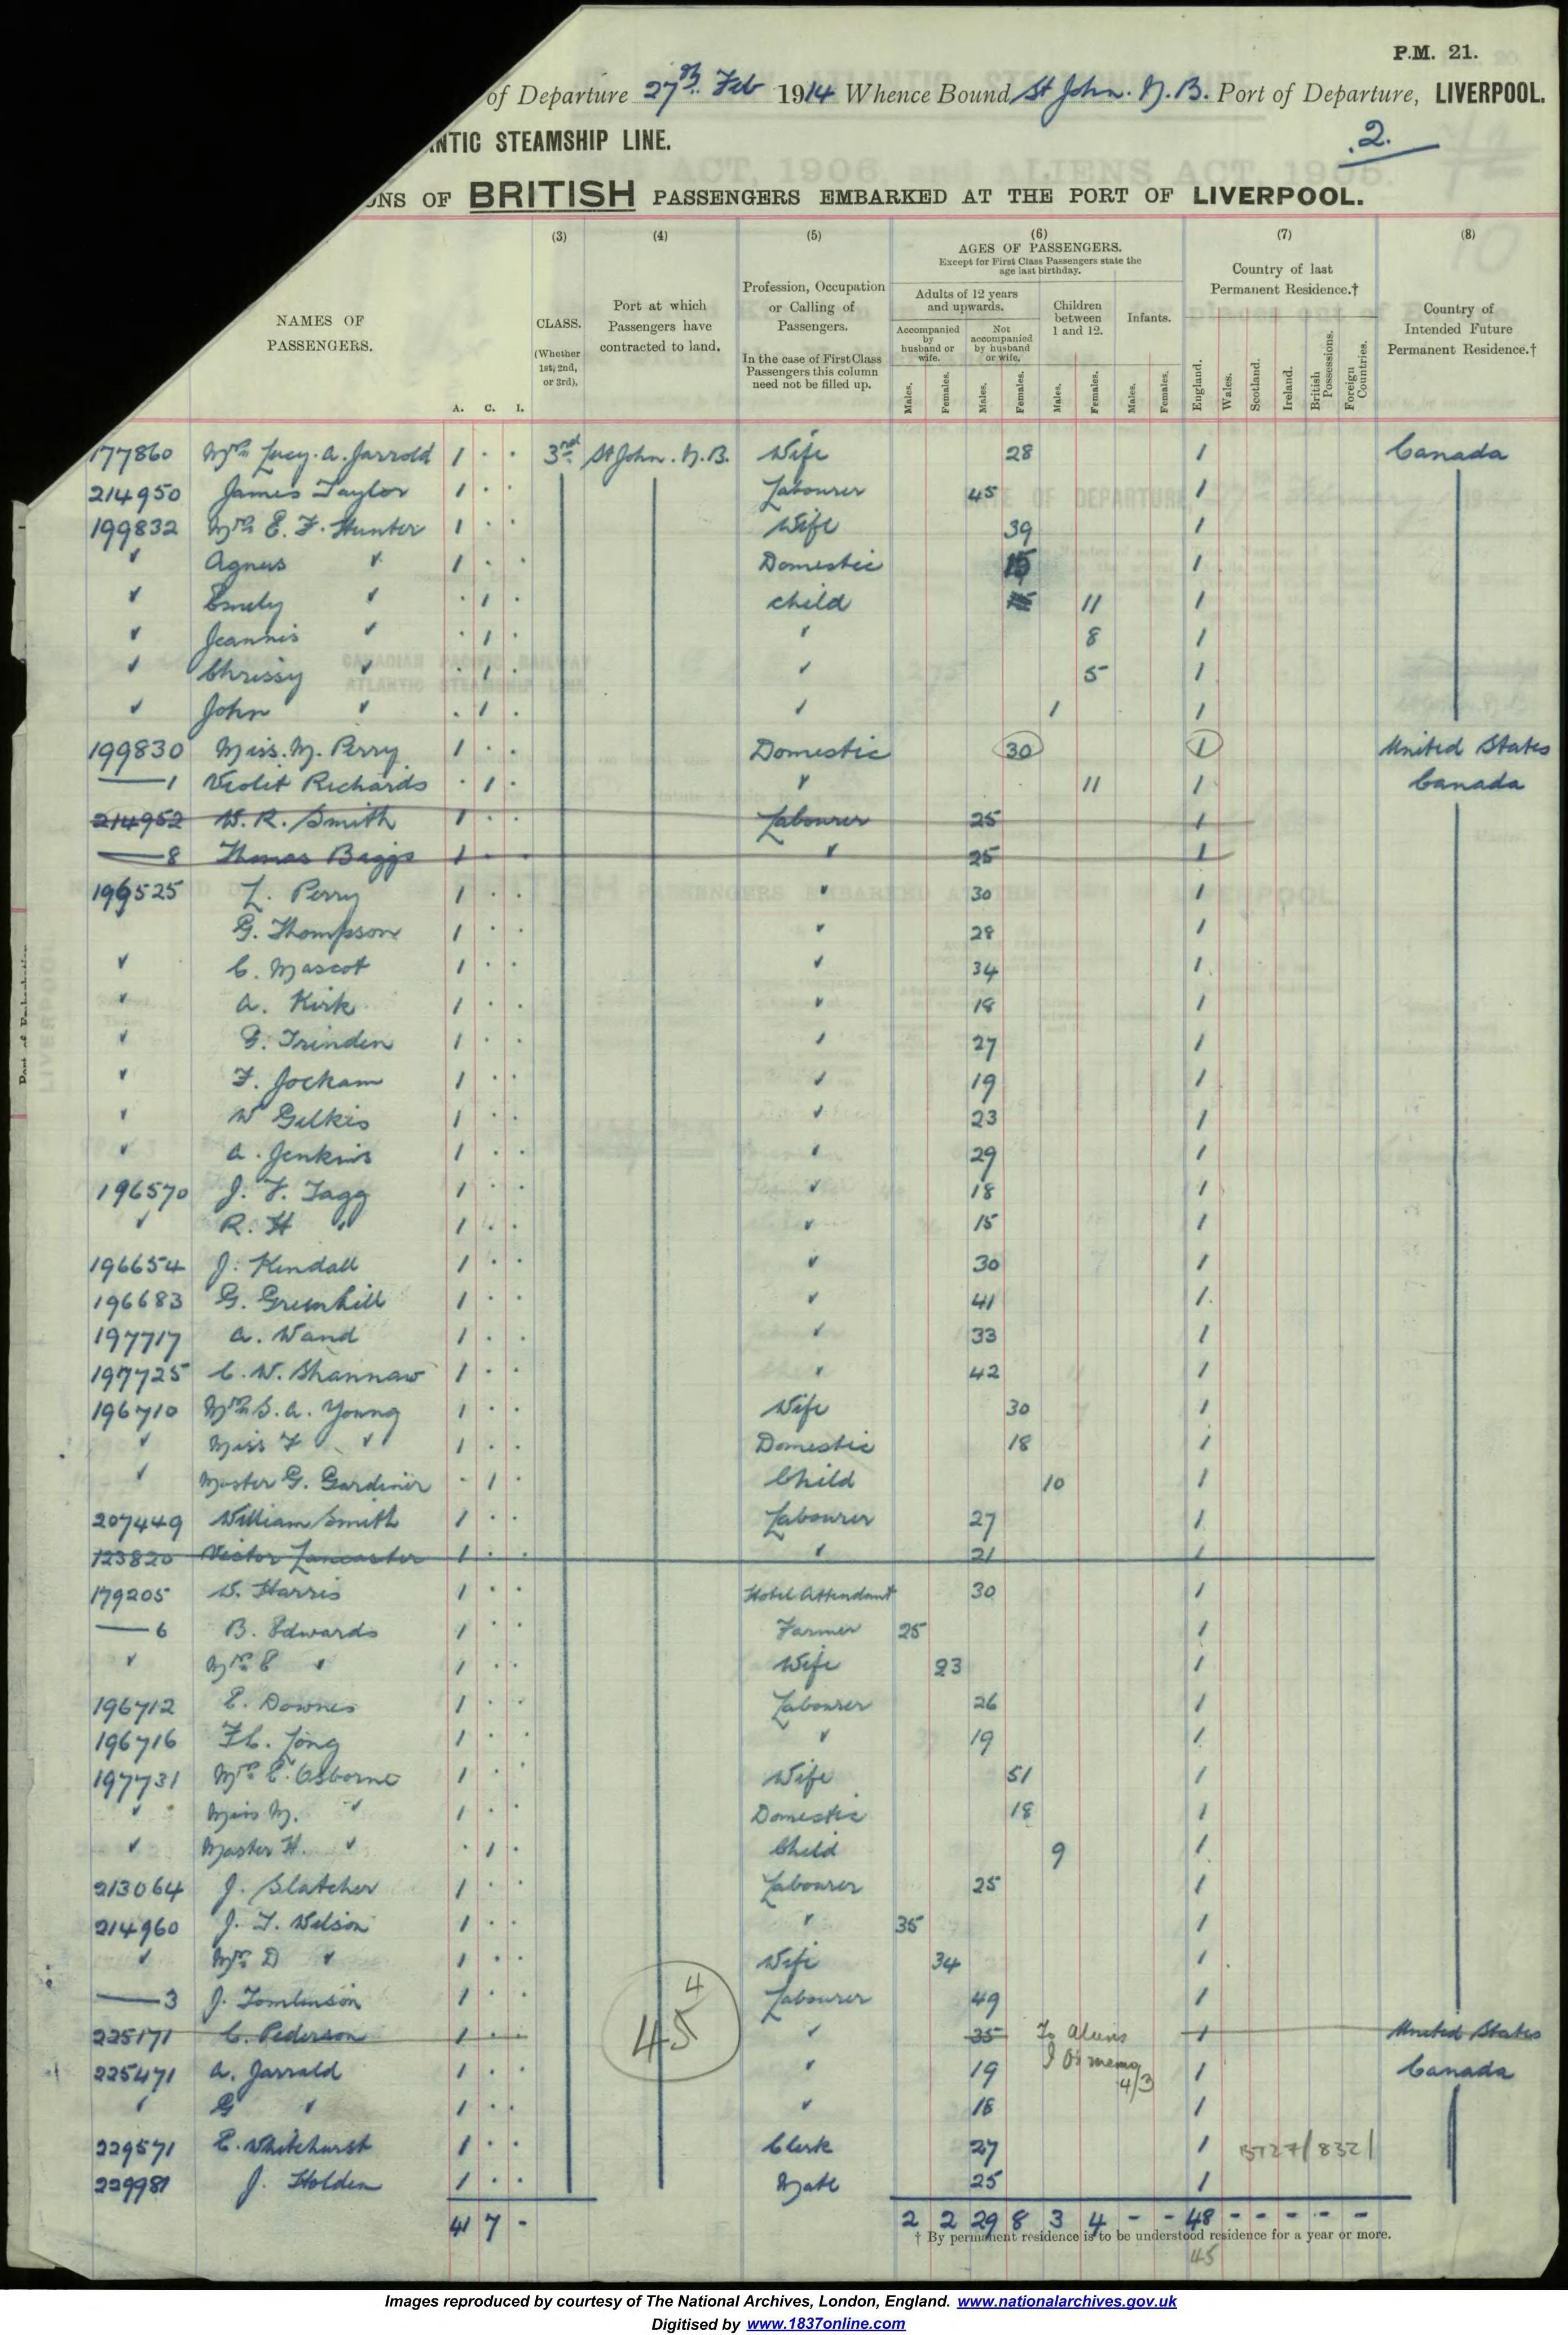 P.M. 21.
of Departure 27th Feb 1914 Whence Bound St John. N.B. Port of Departure, LIVERPOOL.
NTIC STEAMSHIP LINE.
2.
NS OF BRITISH PASSENGERS EMBARKED AT THE PORT OF LIVERPOOL.
NAMES OF PASSENGERS.
A. C. I.
(3) CLASS. (Whether 1st, 2nd, or 3rd).
(4) Port at which Passengers have contracted to land.
(5) Profession, Occupation or Calling of Passengers.
In the case of First Class Passengers this column need not be filled up.
(6) AGES OF PASSENGERS.
Except for First Class Passengers state the age last birthday.
Adults of 12 years and upwards.
Accompanied by husband or wife. Not accompanied by husband or wife.
Children between 1 and 12.
Infants.
Males. Females. Males. Females. Males. Females. Males. Females.
(7) Country of last Permanent Residence.†
England. Wales. Scotland. Ireland. British Possessions. Foreign Countries.
(8) Country of Intended Future Permanent Residence.†
177860 Mrs Lucy. A. Jarrold 1 · · 3rd St John. N.B. Wife 28 1 Canada
214950 James Taylor 1 · · Labourer 45 1
199832 Mrs E. F. Hunter 1 · · Wife 39 1
" Agnes " 1 · · Domestic 15 1
" Emily " · 1 · child 11 1
" Jeannis " · 1 · " 8 1
" Chrissy " · 1 · " 5 1
" John " · 1 · " 1 1
199830 Miss. M. Perry 1 · · Domestic 30 1 United States
—1 Violet Richards · 1 · " 11 1 Canada
214952 W. R. Smith 1 Labourer 25 1
—8 Thomas Baggs 1 · · " 25 1
196525 L. Perry 1 · · " 30 1
G. Thompson 1 · · " 28 1
" C. Mascot 1 · · " 34 1
" A. Kirk 1 · · " 18 1
" G. Trinden 1 · · " 27 1
" F. Jockam 1 · · " 19 1
" W Gilkis 1 · · " 23 1
" A. Jenkins 1 · · " 29 1
196570 J. F. Tagg 1 · · " 18 1
" R. H " 1 · · " 15 1
196654 J. Kendall 1 · · " 30 1
196683 G. Greenhill 1 · · " 41 1
197717 A. Wand 1 · · " 33 1
197725 C. W. Shannaw 1 · · " 42 1
196710 Mrs S. A. Young 1 · · Wife 30 1
" Miss F " 1 · · Domestic 18 1
" Master G. Gardiner · 1 · Child 10 1
207449 William Smith 1 · · Labourer 27 1
123820 Victor Lancaster 1 · · " 21 1
179205 W. Harris 1 · · Hotel Attendant 30 1
—6 B. Edwards 1 · · Farmer 25 1
" Mrs E " 1 · · Wife 23 1
196712 E. Downes 1 · · Labourer 26 1
196716 F.C. Long 1 · · " 19 1
197731 Mrs E. Osborne 1 · · Wife 51 1
" Miss M. " 1 · · Domestic 18 1
" Master H. " · 1 · Child 9 1
213064 J. Slatcher 1 · · Labourer 25 1
214960 J. T. Wilson 1 · · " 35 1
" Mrs D " 1 · · Wife 34 1
—3 J. Tomlinson 1 · · Labourer 49 1
225171 C. Pederson 1 · · " 35 To Aliens 1 United States
225471 A. Jarrald 1 · · " 19 memo 4/3 1 Canada
" G " 1 · · " 18 1
229571 E. Whitehurst 1 · · Clerk 27 1 BT27/832/
229981 J. Holden 1 · · Mate 25 1
4
45
41 7 - 2 2 29 8 3 4 - - 48 - - - - -
† By permanent residence is to be understood residence for a year or more.
45
Images reproduced by courtesy of The National Archives, London, England. www.nationalarchives.gov.uk
Digitised by www.1837online.com